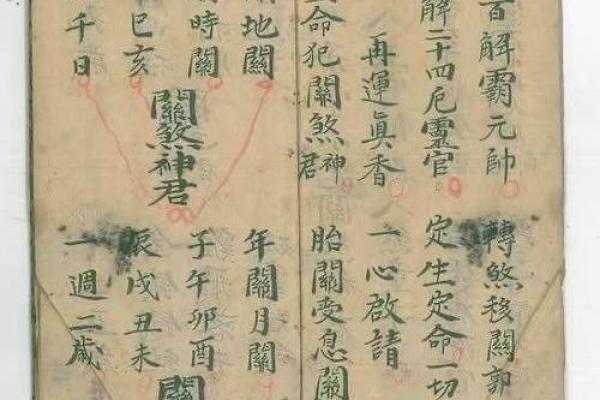 百解霸元帥 轉煞移關郭
解二十四厄靈官 定生定命一切
再運眞香 一心啟請
命犯關煞神君 胎關受息關
地關 年關月關
時關 子午卯酉
關煞神君 關
巳亥 辰戌丑未
千日 一週二歲